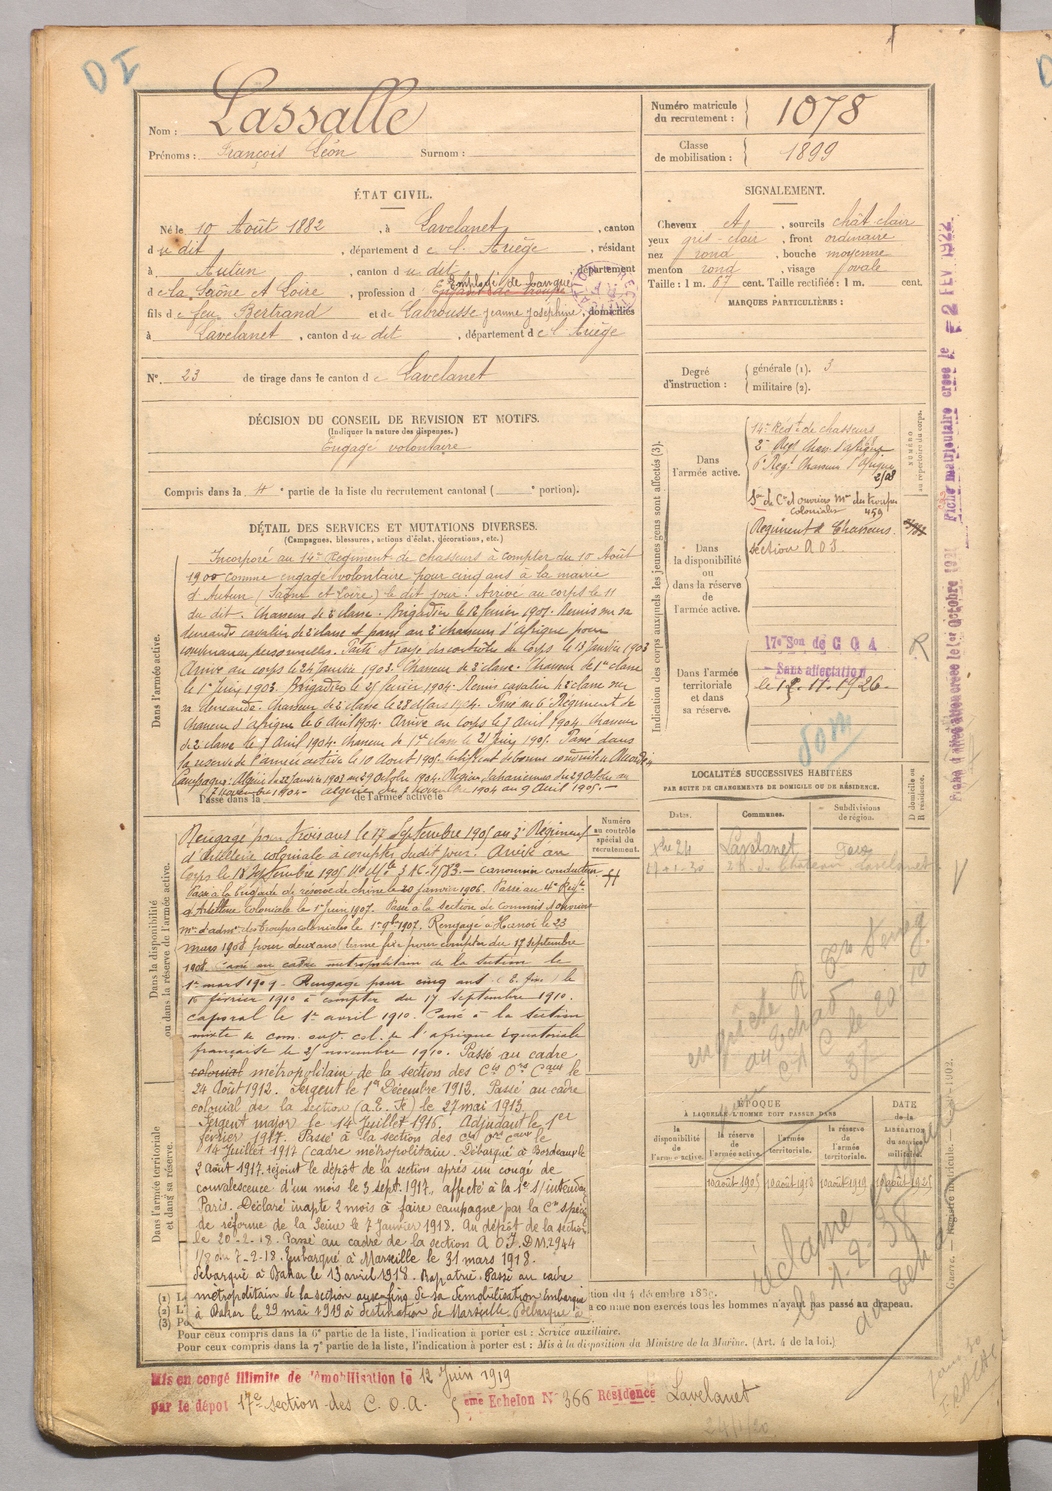 DI
Nom : Lassalle
Prénoms : François Léon Surnom :
Numéro matricule du recrutement : 1078
Classe de mobilisation : 1899
ÉTAT CIVIL.
Né le 10 Août 1882 , à Lavelanet , canton
du dit , département de l'Ariège , résidant
à Autun , canton du dit , département
de la Saône et Loire , profession d Employé de banque
fils de feu Bertrand et de Labrousse Jeanne Joséphine , domiciliés
à Lavelanet , canton du dit , département de l'Ariège
N° 23 de tirage dans le canton de Lavelanet
SIGNALEMENT.
Cheveux et , sourcils chât-clair
yeux gris-clair , front ordinaire
nez rond , bouche moyenne
menton rond , visage ovale
Taille : 1 m. 67 cent. Taille rectifiée : 1 m. cent.
MARQUES PARTICULIÈRES :
Degré d'instruction : générale (1). 3
militaire (2).
DÉCISION DU CONSEIL DE REVISION ET MOTIFS.
(Indiquer la nature des dispenses.)
Engagé volontaire
Compris dans la 4e partie de la liste du recrutement cantonal ( portion).
DÉTAIL DES SERVICES ET MUTATIONS DIVERSES.
(Campagnes, blessures, actions d'éclat, décorations, etc.)
Dans l'armée active.
Incorporé au 14e Régiment de chasseurs à compter du 10 Août
1900 comme engagé volontaire pour cinq ans à la mairie
d'Autun (Saône et Loire) le dit jour. Arrivé au corps le 11
du dit. Chasseur de 2e classe. Brigadier le 12 février 1901. Remis sur sa
demande cavalier de 2e classe et passé au 2e chasseurs d'Afrique pour
convenances personnelles. Parti et rayé des contrôles du Corps le 13 Janvier 1903
Arrivé au corps le 24 Janvier 1903. Chasseur de 2e classe. Chasseur de 1ère classe
le 1er Juin 1903. Brigadier le 25 février 1904. Remis cavalier de 2e classe sur
sa demande. Chasseur de 2e classe le 28 Mars 1904. Passé au 6e Régiment de
Chasseurs d'Afrique le 6 Avril 1904. Arrivé au corps le 7 Avril 1904. Chasseur
de 2e classe le 7 Avril 1904. Chasseur de 1ère classe le 21 Juin 1905. Passé dans
la réserve de l'armée active le 10 Août 1905. Certificat de bonne conduite
Campagnes : Algérie du 22 Janvier 1903 au 29 Octobre 1904. Région Saharienne du 29 Octobre au
7 Novembre 1904 - Algérie du 7 Novembre 1904 au 9 Avril 1905.
Passé dans la de l'armée active le
Dans la disponibilité ou dans la réserve de l'armée active.
Rengagé pour trois ans le 17 Septembre 1905 au 3e Régiment
d'Artillerie coloniale à compter dudit jour. Arrivé au
Corps le 18 Septembre 1905. canonnier conducteur
Passé à la brigade de réserve de chine le 20 janvier 1906. Passé au 4e Régt
d'Artillerie Coloniale le 1er Juin 1907. Passé à la section de Commis et ouvriers
mres d'admon des troupes coloniales le 1er 9bre 1907. Rengagé à Hanoï le 23
mars 1908 pour deux ans terme fixe pour compter du 17 septembre
1908. Passé au cadre métropolitain de la section le
1er mars 1909. Rengagé pour cinq ans le
15 février 1910 à compter du 17 septembre 1910.
caporal le 1er avril 1910. Passé à la section
mixte de com. ouv. col. de l'afrique équatoriale
française le 25 novembre 1910. Passé au cadre
colonial métropolitain de la section des Cis Ors Caux le
24 Août 1912. Sergent le 1er Décembre 1912. Passé au cadre
colonial de la section (A.E.F.) le 27 mai 1913.
Sergent major le 14 Juillet 1915. Adjudant le 1er
février 1917. Passé à la section des cis ors caux le
14 Juillet 1917 (cadre métropolitain. Débarqué à Bordeaux le
2 août 1917, rejoint le dépôt de la section après un congé de
convalescence d'un mois le 3 sept. 1917, affecté à la 1e s/intendce
Paris. Déclaré inapte 2 mois à faire campagne par la Con spéciale
de réforme de la Seine le 7 Janvier 1918. Au dépôt de la section
le 20-2-18. Passé au cadre de la section A O F. DM 2944
1/8 du 7-2-18. Embarqué à Marseille le 31 mars 1918.
Débarqué à Dakar le 13 avril 1918. Rapatrié. Passé au cadre
métropolitain de la section aux fins de sa démobilisation. Embarqué
à Dakar le 29 mai 1919 à destination de Marseille. Débarqué à
Dans l'armée territoriale et dans sa réserve.
Numéro au contrôle spécial du recrutement.
Indication des corps auxquels les jeunes gens sont affectés (3).
NUMÉRO au répertoire du corps.
Dans l'armée active.
14e Régt de chasseurs
2e Régt Chass. d'Afrique
6e Régt Chasseurs d'Afrique
Son de Cis et ouvriers mres des troupes
coloniales 459
Dans la disponibilité ou dans la réserve de l'armée active.
Régiment de Chasseurs
section A O F.
Dans l'armée territoriale et dans sa réserve.
17e Son de C O A
Sans affectation
le 12.11.1926
R
LOCALITÉS SUCCESSIVES HABITÉES
PAR SUITE DE CHANGEMENTS DE DOMICILE OU DE RÉSIDENCE.
Dates. Communes. Subdivisions de région. D domicile ou R résidence.
Xbre 24 Lavelanet Foix
17-01-30 Lavelanet
enquête R
ÉPOQUE
À LAQUELLE L'HOMME DOIT PASSER DANS
DATE de la LIBÉRATION du service militaire.
la disponibilité de l'armée active. la réserve de l'armée active. l'armée territoriale. la réserve de l'armée territoriale.
10 août 1905 10 août 1913 10 août 1919 10 août 1925
réclamé
Fiche matriculaire créée le - 2 FEV. 1922
Fiche d'affectation créée le 1er Octobre 1921
Guerre. — Registre matricule. — 1902.
(1)
(2)
(3)
tion du 4 décembre 1889.
a comme non exercés tous les hommes n'ayant pas passé au drapeau.
Pour ceux compris dans la 6e partie de la liste, l'indication à porter est : Service auxiliaire.
Pour ceux compris dans la 7e partie de la liste, l'indication à porter est : Mis à la disposition du Ministre de la Marine. (Art. 4 de la loi.)
Mis en congé illimité de démobilisation le 12 Juin 1919
par le dépôt 17e section des C. O. A. 5 ème Echelon N° 366 Résidence Lavelanet